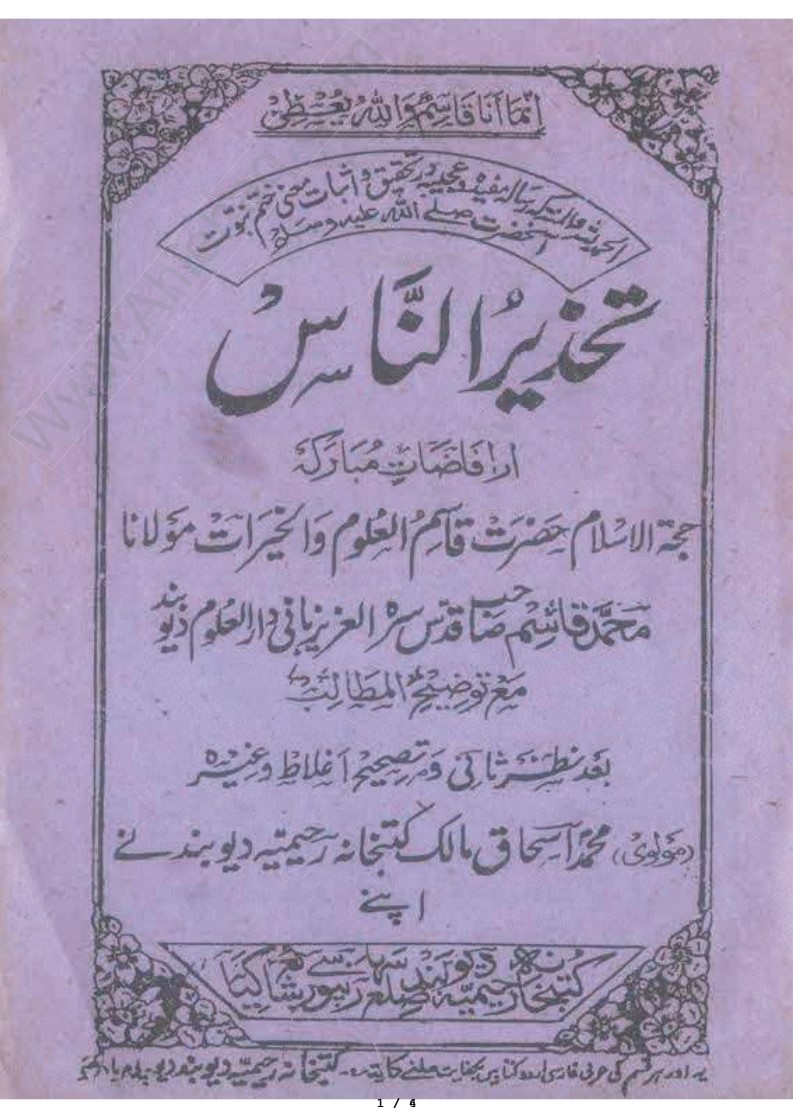 انما انا قاسم والله يعطى
الحمد للہ والمنت کہ رسالہ مفیدہ وعجیبہ در تحقیق واثبات معنی ختم نبوت
آنحضرت صلے اللہ علیہ وسلم
تحذیرُ النَّاسْ
از افاضاتِ مُبارکہ
حجۃ الاسلام حضرت قاسم العلوم والخیرات مولانا
محمد قاسم صاحب قدس سرہ العزیز بانی دار العلوم دیوبند
مع توضیح المطالب
بعد نظر ثانی و تصحیح اغلاط وغیرہ
(مولوی) محمد اسحاق مالک کتبخانہ رحیمیہ دیوبند نے
اپنے
کتبخانہ رحیمیہ دیوبند ضلع سہارنپور سے شائع کیا
یہ اور ہر قسم کی عربی فارسی اردو کتابیں بکفایت ملنے کا پتہ:۔ کتبخانہ رحیمیہ دیوبند
1 / 4